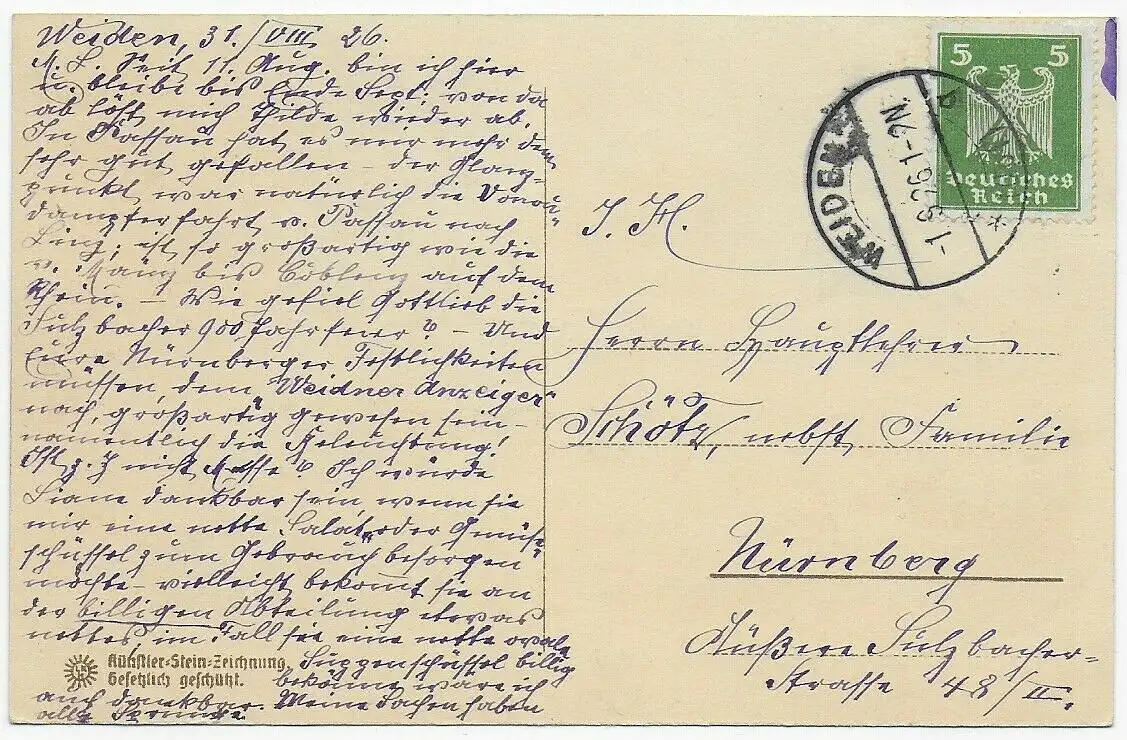 Weiden, 31./VIII 26.
M. L. Seit 11. Aug. bin ich hier
u. bleibe bis Ende Sept. von da
ab löst mich Thilde wieder ab.
In Passau hat es mir mehr dem
sehr gut gefallen - der Glanz-
punkt war natürlich die Donau-
dampferfahrt v. Passau nach
Linz; ist so großartig wie die
v. Mainz bis Coblenz auf dem
Rhein. - Wie gefiel Gottlieb die
Sulzbacher 900 Jahrfeier? - Und
Eure Nürnberger Festlichkeiten
müssen, dem "Weidner Anzeiger"
nach, großartig gewesen sein -
namentlich die Beleuchtung!
Ist z. Z nicht Messe? Ich würde
Liane dankbar sein wenn sie
mir eine nette Salat- oder Gemüse-
schüssel zum Gebrauch besorgen
möchte - vielleicht bekommt sie an
der billigen Abteilung etwas
nettes im Fall sie eine nette ovale
Suppenschüssel billig
bekäme wäre ich
auch dankbar. Meine Sachen haben
alle Sprünge
Künstler-Stein-Zeichnung.
Gesetzlich geschützt.
5 5
Deutsches
Reich
WEIDEN
-1.9.26 1-2N
b
S. H.
Herrn Hauptlehrer
Schötz, nebst Familie
Nürnberg
Äußere Sulzbacher-
Strasse 48/II.